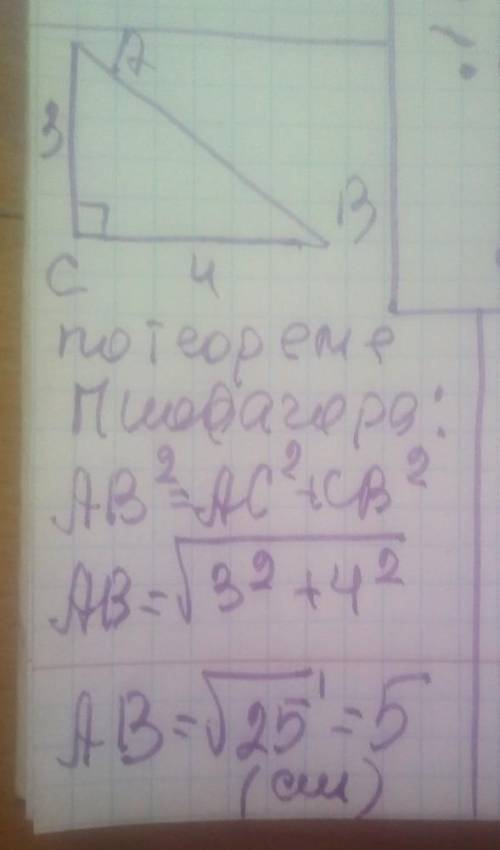 A
3
B
C
4
по теореме
Пифагора:
AB²=AC²+CB²
AB=√3²+4²
AB=√25=5
(см)